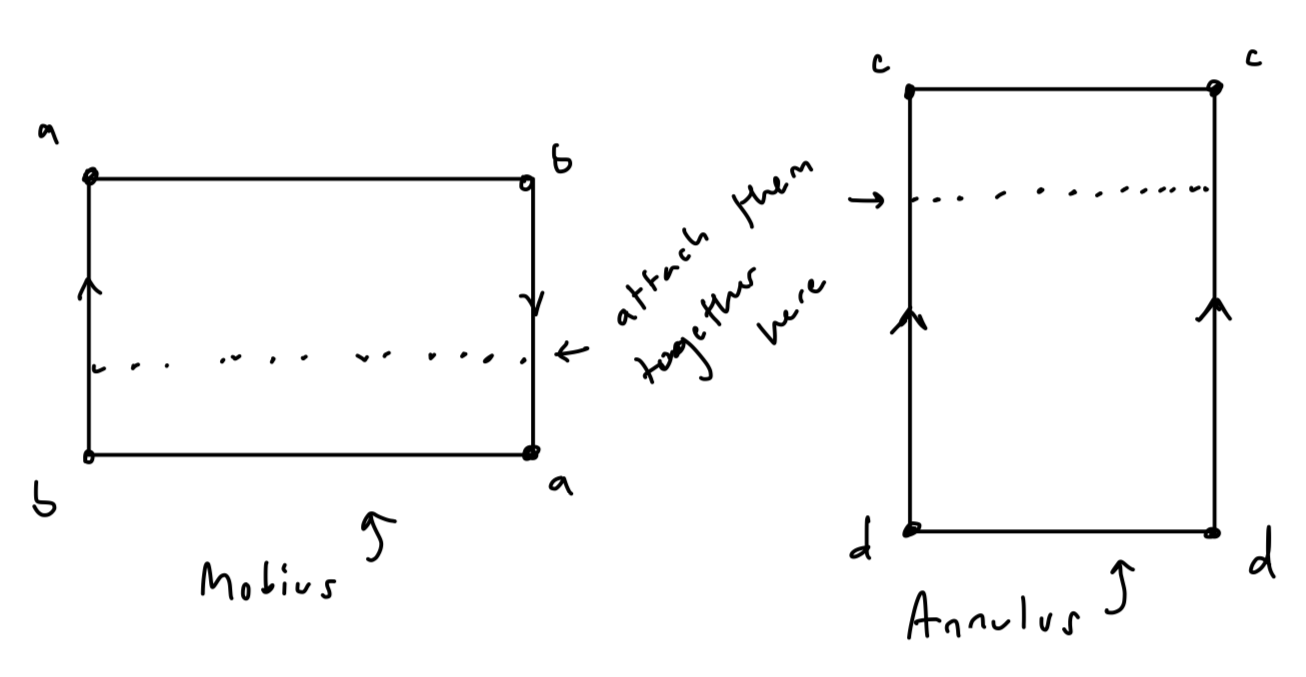 a
b
b
a
Mobius
attach them
together
here
c
c
d
d
Annulus